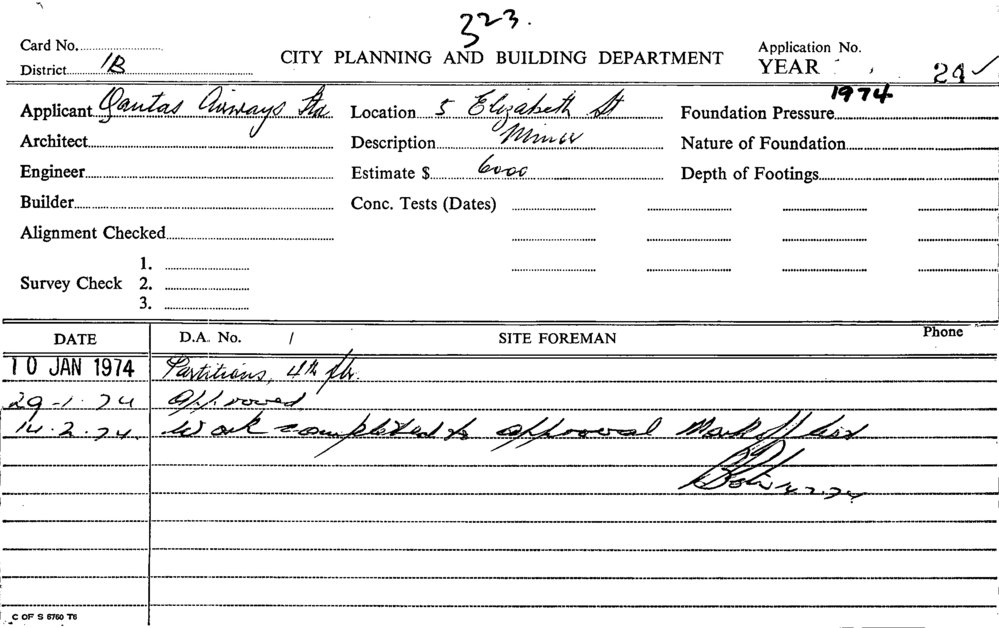 323.
Card No.
District 1B
CITY PLANNING AND BUILDING DEPARTMENT
Application No.
YEAR 24 ✓
1974
Applicant Qantas Airways Ltd.
Location 5 Elizabeth St
Foundation Pressure
Architect
Description Minor
Nature of Foundation
Engineer
Estimate $ 6000
Depth of Footings
Builder
Conc. Tests (Dates)
Alignment Checked
Survey Check
1.
2.
3.
DATE D.A. No. / SITE FOREMAN Phone
10 JAN 1974 Partitions, 4th flr.
29-1-74 Approved
14.2.74. Work completed to approval Mark off list
14.2.74
C OF S 6760 T6